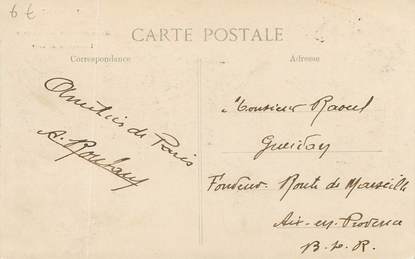 CARTE POSTALE
Correspondance
Adresse
Amitiés de Paris
A.
Monsieur Raoul
Fondeur Route de Marseille
Aix-en-Provence
B.D.R.